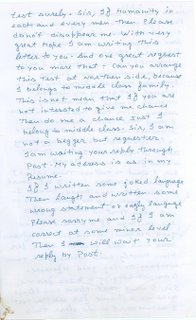 test surely. Sir, If Humanity in
each and every men then Please
don't disappear me. With very
great hope I am writing this
letter to you. And one great request
to you more that, Can you arrange
this test at northern side, because
I belongs to middle class family.
This is not mean that If you are
not intrested to give me chance
Then do me a chance Just I
belong is middle class. Sir, I am
not a begger but requester.
I am waiting your reply through
Post. My address is as in my
Resume.
If I written some joked language
Then laugh and written some
wrong statement or early language
Please sorry me and If I am
correct at some miner level
Then I will wait your
reply by Post.